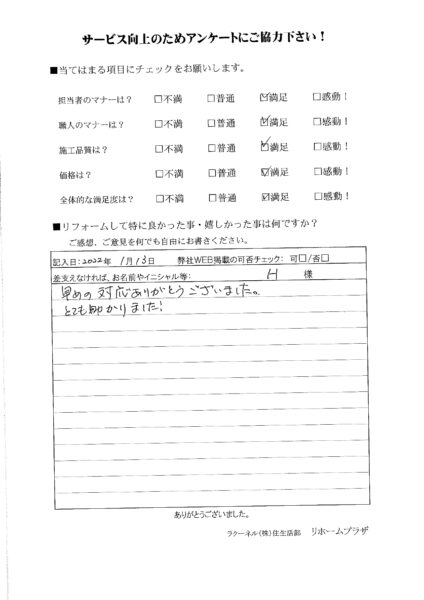 サービス向上のためアンケートにご協力下さい！
■当てはまる項目にチェックをお願いします。
担当者のマナーは？ □不満 □普通 ☑満足 □感動！
職人のマナーは？ □不満 □普通 ☑満足 □感動！
施工品質は？ □不満 □普通 ☑満足 □感動！
価格は？ □不満 □普通 ☑満足 □感動！
全体的な満足度は？ □不満 □普通 ☑満足 □感動！
■リフォームして特に良かった事・嬉しかった事は何ですか？
ご感想、ご意見を何でも自由にお書きください。
記入日：2022年 1月13日 弊社WEB掲載の可否チェック： 可□/否□
差支えなければ、お名前やイニシャル等： H 様
早めの対応ありがとうございました。
とても助かりました！
ありがとうございました。
ラクーネル(株)住生活部 リホームプラザ